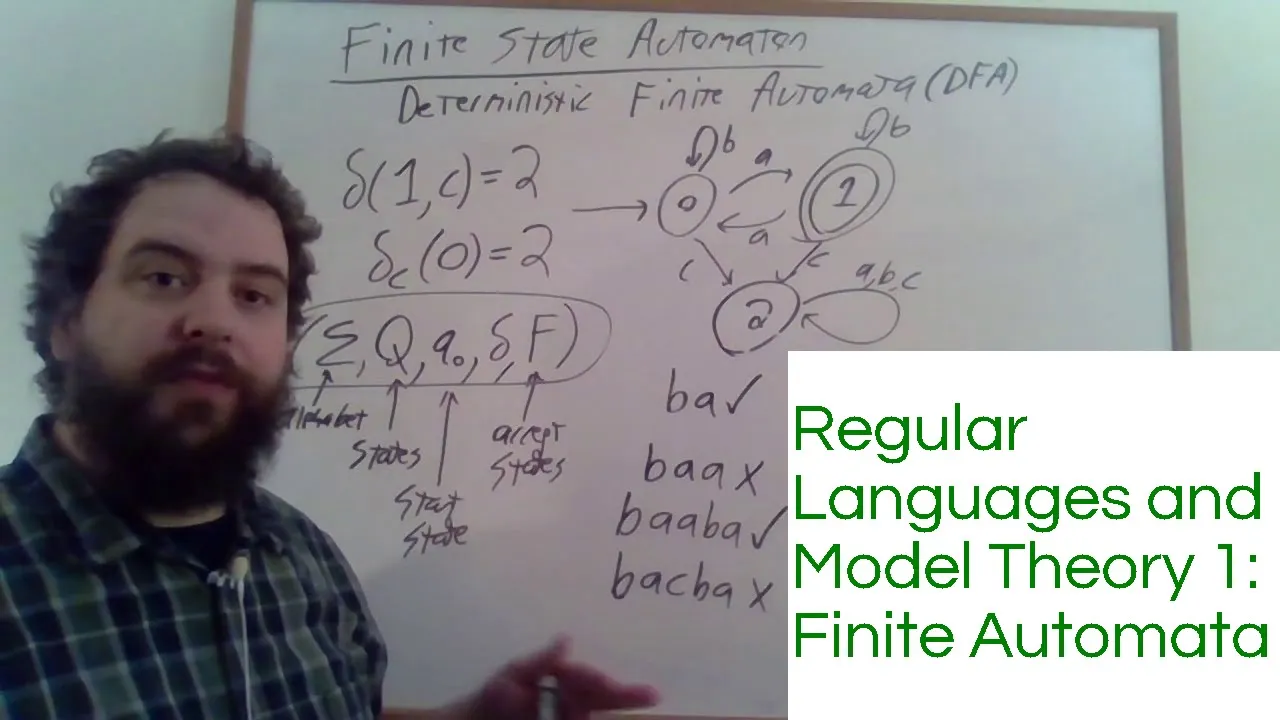 Finite State Automaton
Deterministic Finite Automata (DFA)
δ(1,c)=2
δc(0)=2
(Σ,Q,q₀,δ,F)
alphabet
States
Start
State
accept
States
b
a
b
0
1
a
c
c
a,b,c
2
ba✓
baax
baaba✓
bacba x
Regular
Languages and
Model Theory 1:
Finite Automata